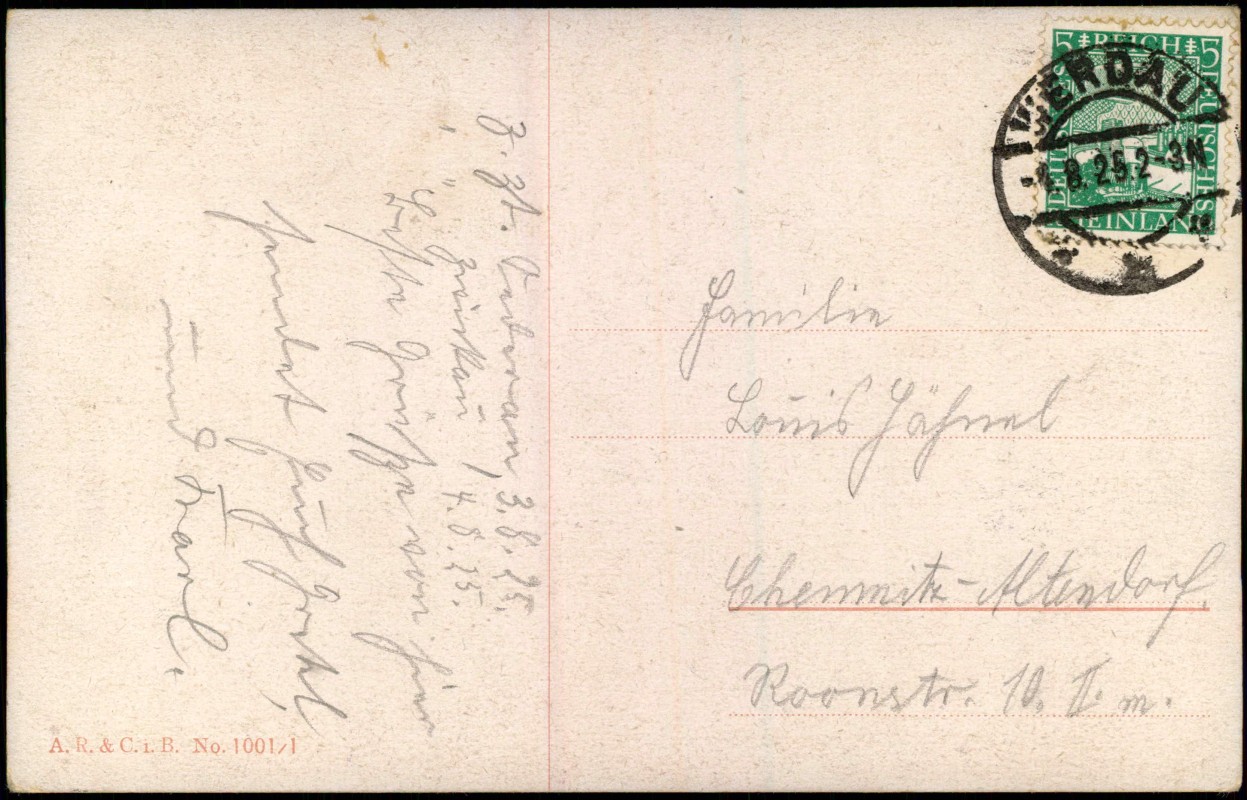 z. Zt. Oederan, 3.8.25.
" " Zwickau, 4.8.25.
Beste Grüße von hier
sendet Euch Gretel,
und Karl.
Familie
Louis Jähnel
Chemnitz-Altendorf.
Roonstr. 10. II. m.
A. R. & C. i. B. No. 1001/1
5 REICH 5
DEUTSCHES
RHEINLAND
WERDAU
8.25.2-3N